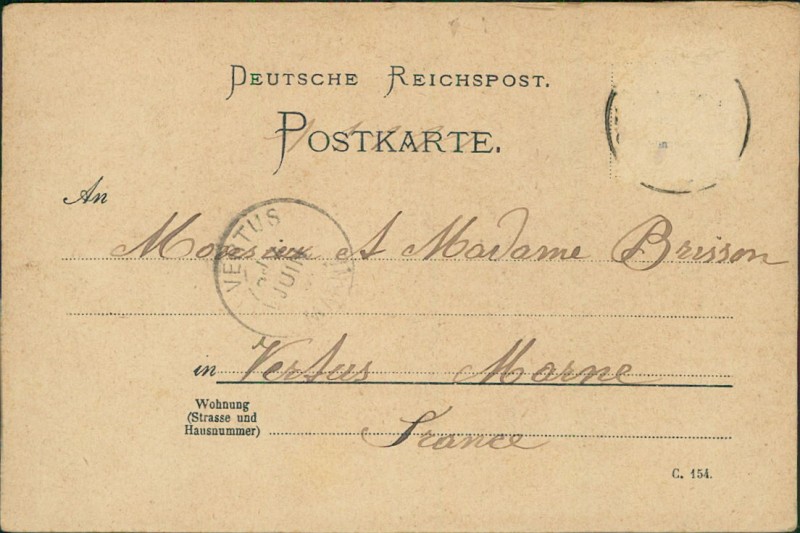 DEUTSCHE REICHSPOST.
POSTKARTE.
An
Monsieur et Madame Brisson
VERTUS
JUIN
MARNE
in Vertus Marne
Wohnung
(Strasse und
Hausnummer)
France
C. 154.